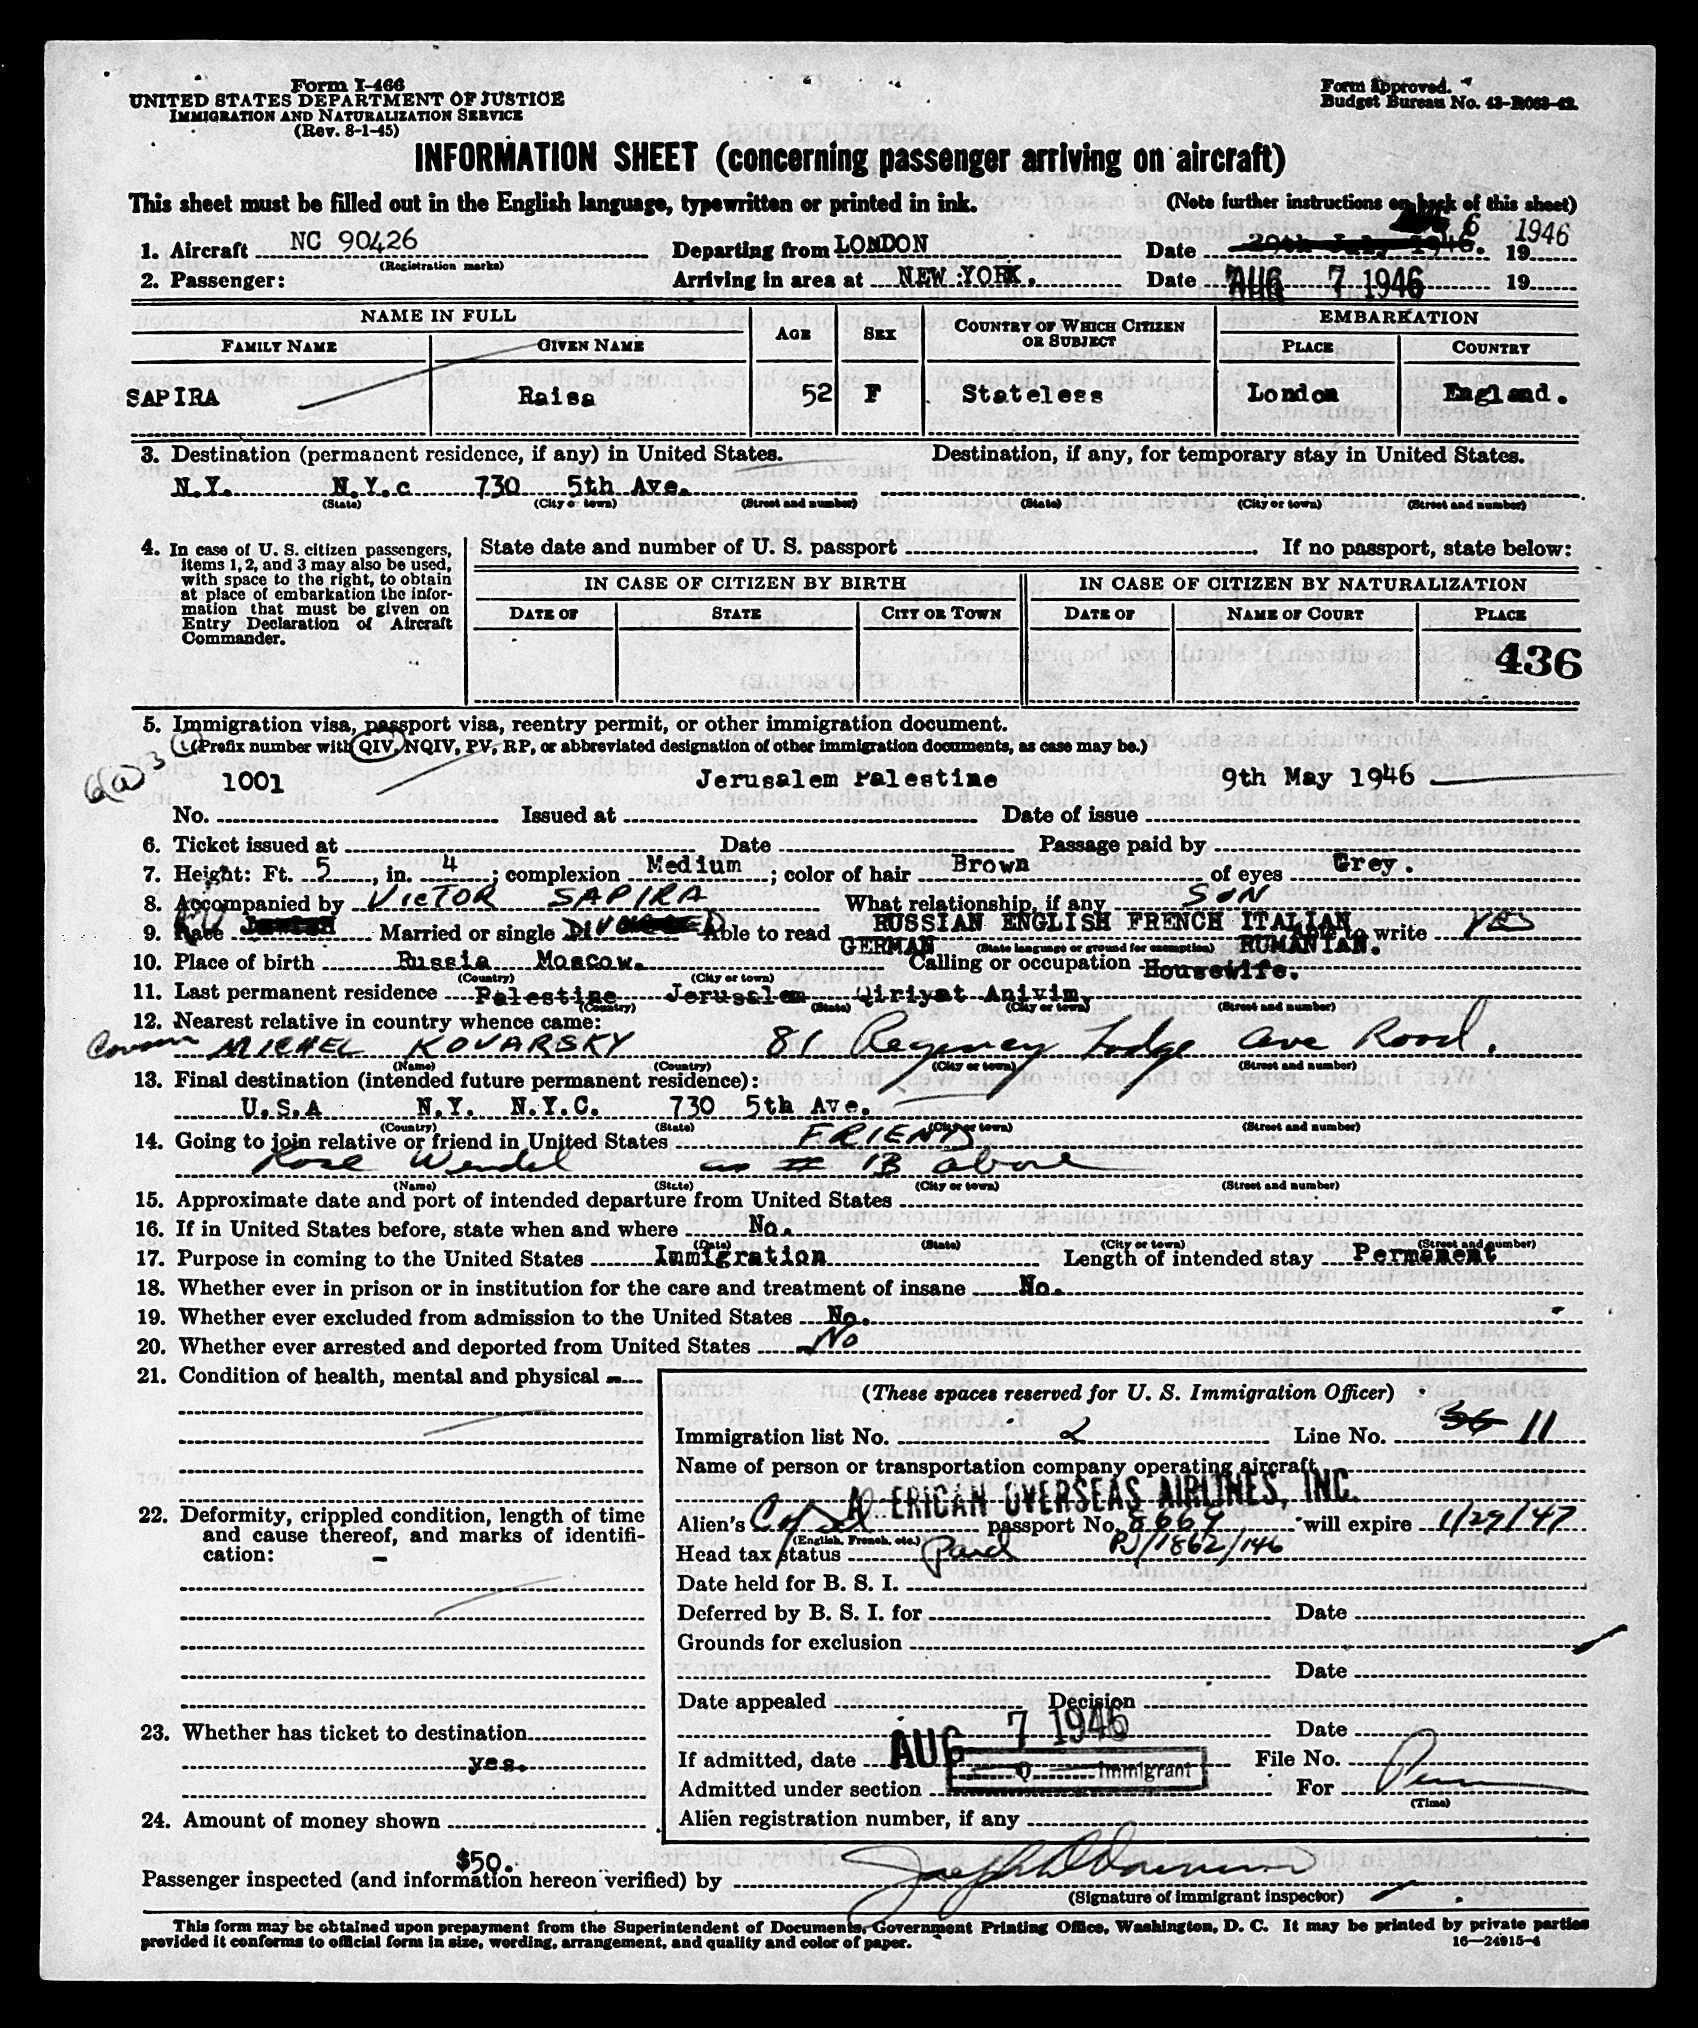 Form I-466
UNITED STATES DEPARTMENT OF JUSTICE
IMMIGRATION AND NATURALIZATION SERVICE
(Rev. 8-1-45)
Form Approved.
Budget Bureau No. 43-R063-42.
INFORMATION SHEET (concerning passenger arriving on aircraft)
This sheet must be filled out in the English language, typewritten or printed in ink. (Note further instructions on back of this sheet)
1. Aircraft NC 90426 Departing from LONDON Date 29th July 1946. 6 19 1946
(Registration marks)
2. Passenger: Arriving in area at NEW YORK. Date AUG 7 1946 19
NAME IN FULL AGE SEX COUNTRY OF WHICH CITIZEN OR SUBJECT EMBARKATION
FAMILY NAME GIVEN NAME PLACE COUNTRY
SAPIRA Raisa 52 F Stateless London England.
3. Destination (permanent residence, if any) in United States. Destination, if any, for temporary stay in United States.
N.Y. N.Y.c 730 5th Ave.
(State) (City or town) (Street and number) (State) (City or town) (Street and number)
4. In case of U. S. citizen passengers, items 1, 2, and 3 may also be used, with space to the right, to obtain at place of embarkation the information that must be given on Entry Declaration of Aircraft Commander.
State date and number of U. S. passport If no passport, state below:
IN CASE OF CITIZEN BY BIRTH IN CASE OF CITIZEN BY NATURALIZATION
DATE OF STATE CITY OR TOWN DATE OF NAME OF COURT PLACE
436
5. Immigration visa, passport visa, reentry permit, or other immigration document.
(Prefix number with QIV, NQIV, PV, RP, or abbreviated designation of other immigration documents, as case may be.)
6(a) 3 (1)
1001 Jerusalem Palestine 9th May 1946
No. Issued at Date of issue
6. Ticket issued at Date Passage paid by
7. Height: Ft. 5, in. 4; complexion Medium; color of hair Brown of eyes Grey.
8. Accompanied by VICTOR SAPIRA What relationship, if any SON
9. Race Married or single DIVORCED Able to read RUSSIAN ENGLISH FRENCH ITALIAN Able to write YES
GERMAN (State language or ground for exemption) RUMANIAN.
10. Place of birth Russia Moscow. Calling or occupation Housewife.
(Country) (City or town)
11. Last permanent residence Palestine Jerusalem Qiriyat Anivim.
(Country) (State) (City or town) (Street and number)
12. Nearest relative in country whence came:
Cousin MICHEL KOVARSKY 81 Regency Lodge Ave Road.
(Name) (Country) (City or town) (Street and number)
13. Final destination (intended future permanent residence):
U.S.A N.Y. N.Y.C. 730 5th Ave.
(Country) (State) (City or town) (Street and number)
14. Going to join relative or friend in United States FRIEND
Rose Wendel as # 13 above
(Name) (State) (City or town) (Street and number)
15. Approximate date and port of intended departure from United States
16. If in United States before, state when and where No.
(Date) (State) (City or town) (Street and number)
17. Purpose in coming to the United States Immigration Length of intended stay Permanent
18. Whether ever in prison or in institution for the care and treatment of insane No.
19. Whether ever excluded from admission to the United States No.
20. Whether ever arrested and deported from United States No
21. Condition of health, mental and physical
22. Deformity, crippled condition, length of time and cause thereof, and marks of identification: -
23. Whether has ticket to destination
yes.
24. Amount of money shown
$50.
(These spaces reserved for U. S. Immigration Officer)
Immigration list No. 2 Line No. 36 11
Name of person or transportation company operating aircraft
AMERICAN OVERSEAS AIRLINES, INC.
Alien's passport No. 8669 will expire 1/29/47
(English, French, etc.)
Head tax status Paid PJ/1862/146
Date held for B. S. I.
Deferred by B. S. I. for Date
Grounds for exclusion
Date
Date appealed Decision
Date
If admitted, date AUG 7 1946 File No.
Admitted under section Q Immigrant For Perm
(Time)
Alien registration number, if any
Passenger inspected (and information hereon verified) by
(Signature of immigrant inspector)
This form may be obtained upon prepayment from the Superintendent of Documents, Government Printing Office, Washington, D. C. It may be printed by private parties
provided it conforms to official form in size, wording, arrangement, and quality and color of paper. 16—24915-4